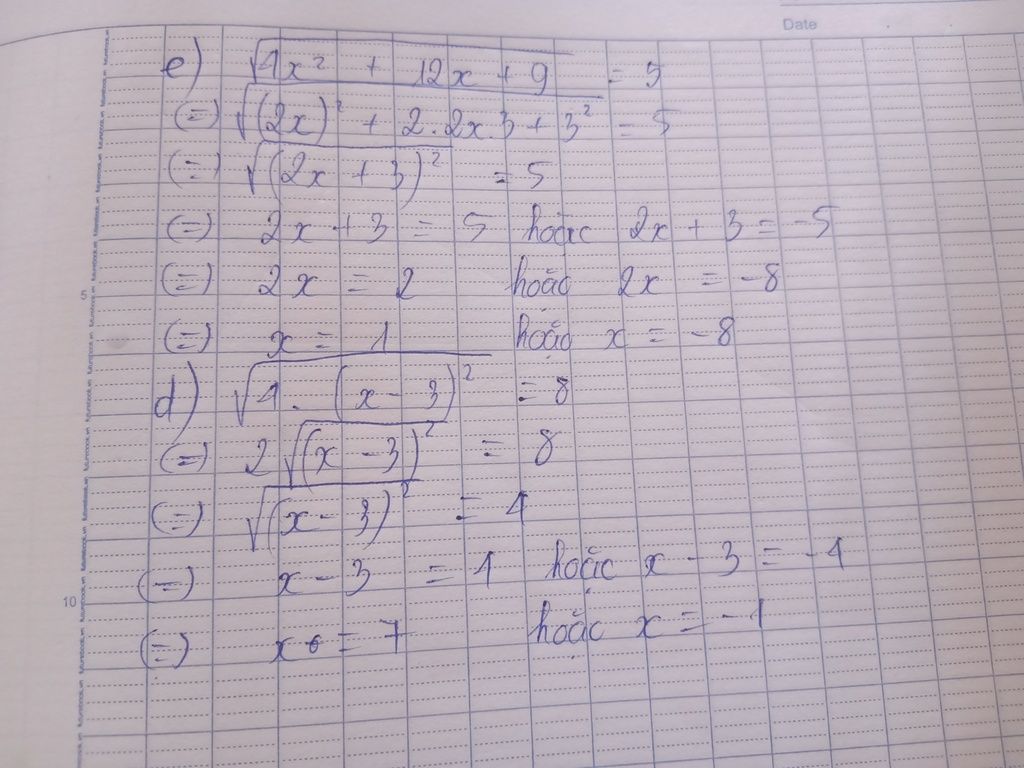 Date
e) √4x² + 12x + 9 = 5
(=) √(2x)² + 2.2x.3 + 3² = 5
(=) √(2x + 3)² = 5
(=) 2x + 3 = 5 hoặc 2x + 3 = -5
5 (=) 2x = 2 hoặc 2x = -8
(=) x = 1 hoặc x = -8
d) √4. (x - 3)² = 8
(=) 2√(x - 3)² = 8
(=) √(x - 3)² = 4
10 (=) x - 3 = 4 hoặc x - 3 = -4
(=) x = 7 hoặc x = -1